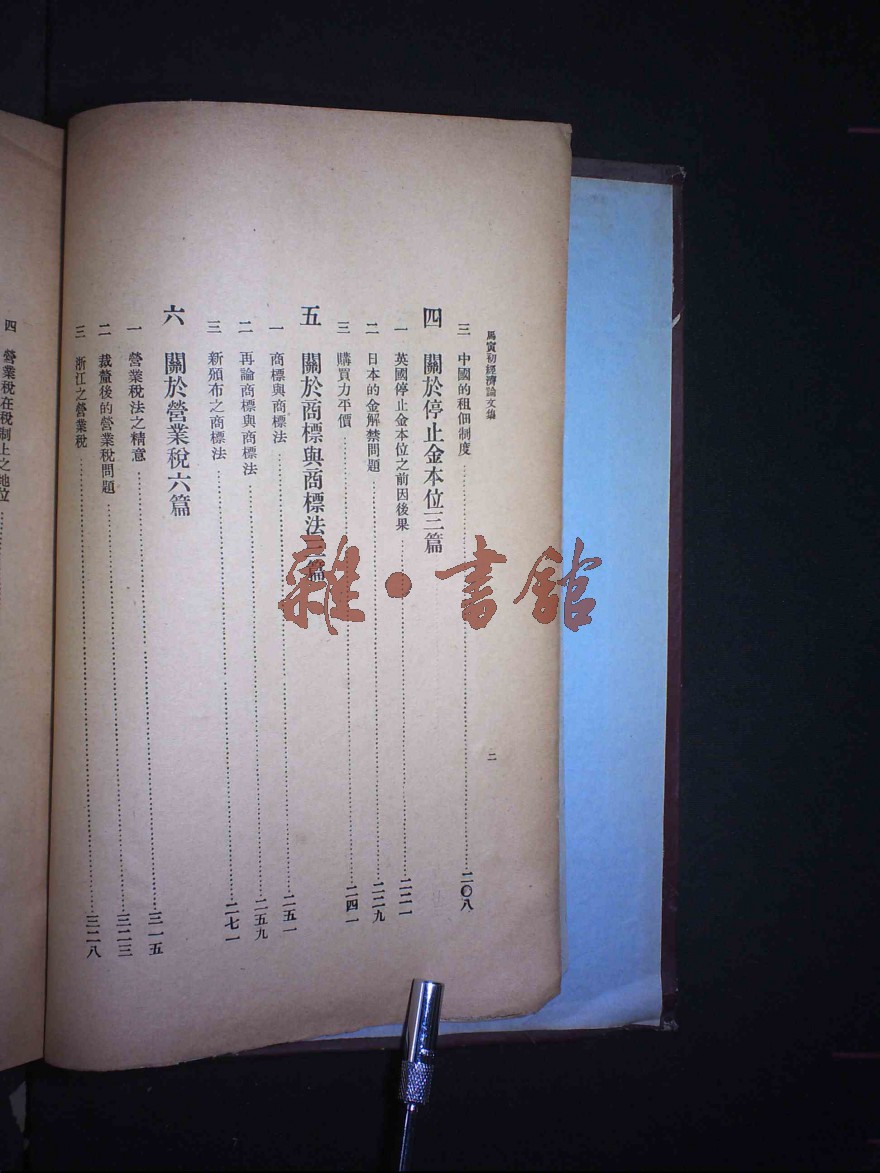 馬寅初經濟論文集
二
三 中國的租佃制度 二〇八
四 關於停止金本位三篇
一 英國停止金本位之前因後果 二二一
二 日本的金解禁問題 二二九
三 購買力平價 二四一
五 關於商標與商標法三篇
一 商標與商標法 二五一
二 再論商標與商標法 二五九
三 新頒布之商標法 二七一
六 關於營業稅六篇
一 營業稅法之精意 三一五
二 裁釐後的營業稅問題 三二三
三 浙江之營業稅 三二八
四 營業稅在稅制上之地位
雜·書館